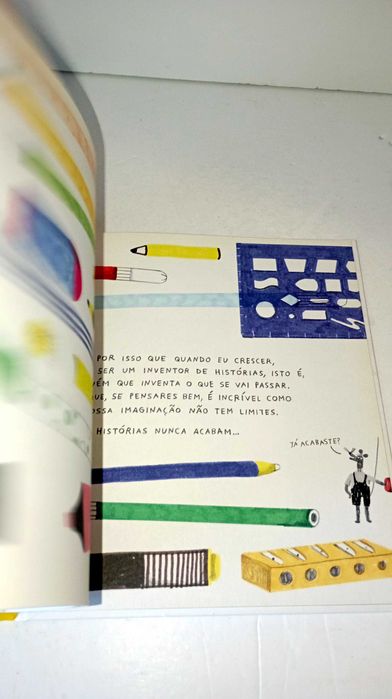 POR ISSO QUE QUANDO EU CRESCER,
SER UM INVENTOR DE HISTÓRIAS, ISTO É,
QUE INVENTA O QUE SE VAI PASSAR.
SE PENSARES BEM, É INCRÍVEL COMO
IMAGINAÇÃO NÃO TEM LIMITES.
HISTÓRIAS NUNCA ACABAM...
JÁ ACABASTE?